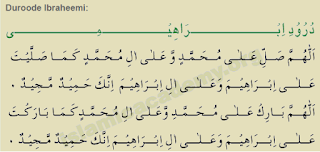 Duroode Ibraheemi:
دُرُوْدِ اِبْـــــــرَاهِيْـــــــمِـــــــى
اَللّٰهُمَّ صَلِّ عَلٰى مُحَمَّدٍ وَّ عَلٰى اٰلِ مُحَمَّدٍ كَمَا صَلَّيْتَ
عَلٰى اِبْرَاهِيْمَ وَعَلٰى اٰلِ اِبْرَاهِيْمَ اِنَّكَ حَمِيْدٌ مَّجِيْدٌ ۰
اَللّٰهُمَّ بَارِكْ عَلٰى مُحَمَّدٍ وَّعَلٰى اٰلِ مُحَمَّدٍ كَمَا بَارَكْتَ
عَلٰى اِبْرَاهِيْمَ وَعَلٰى اٰلِ اِبْرَاهِيْمَ اِنَّكَ حَمِيْدٌ مَّجِيْدٌ ۰